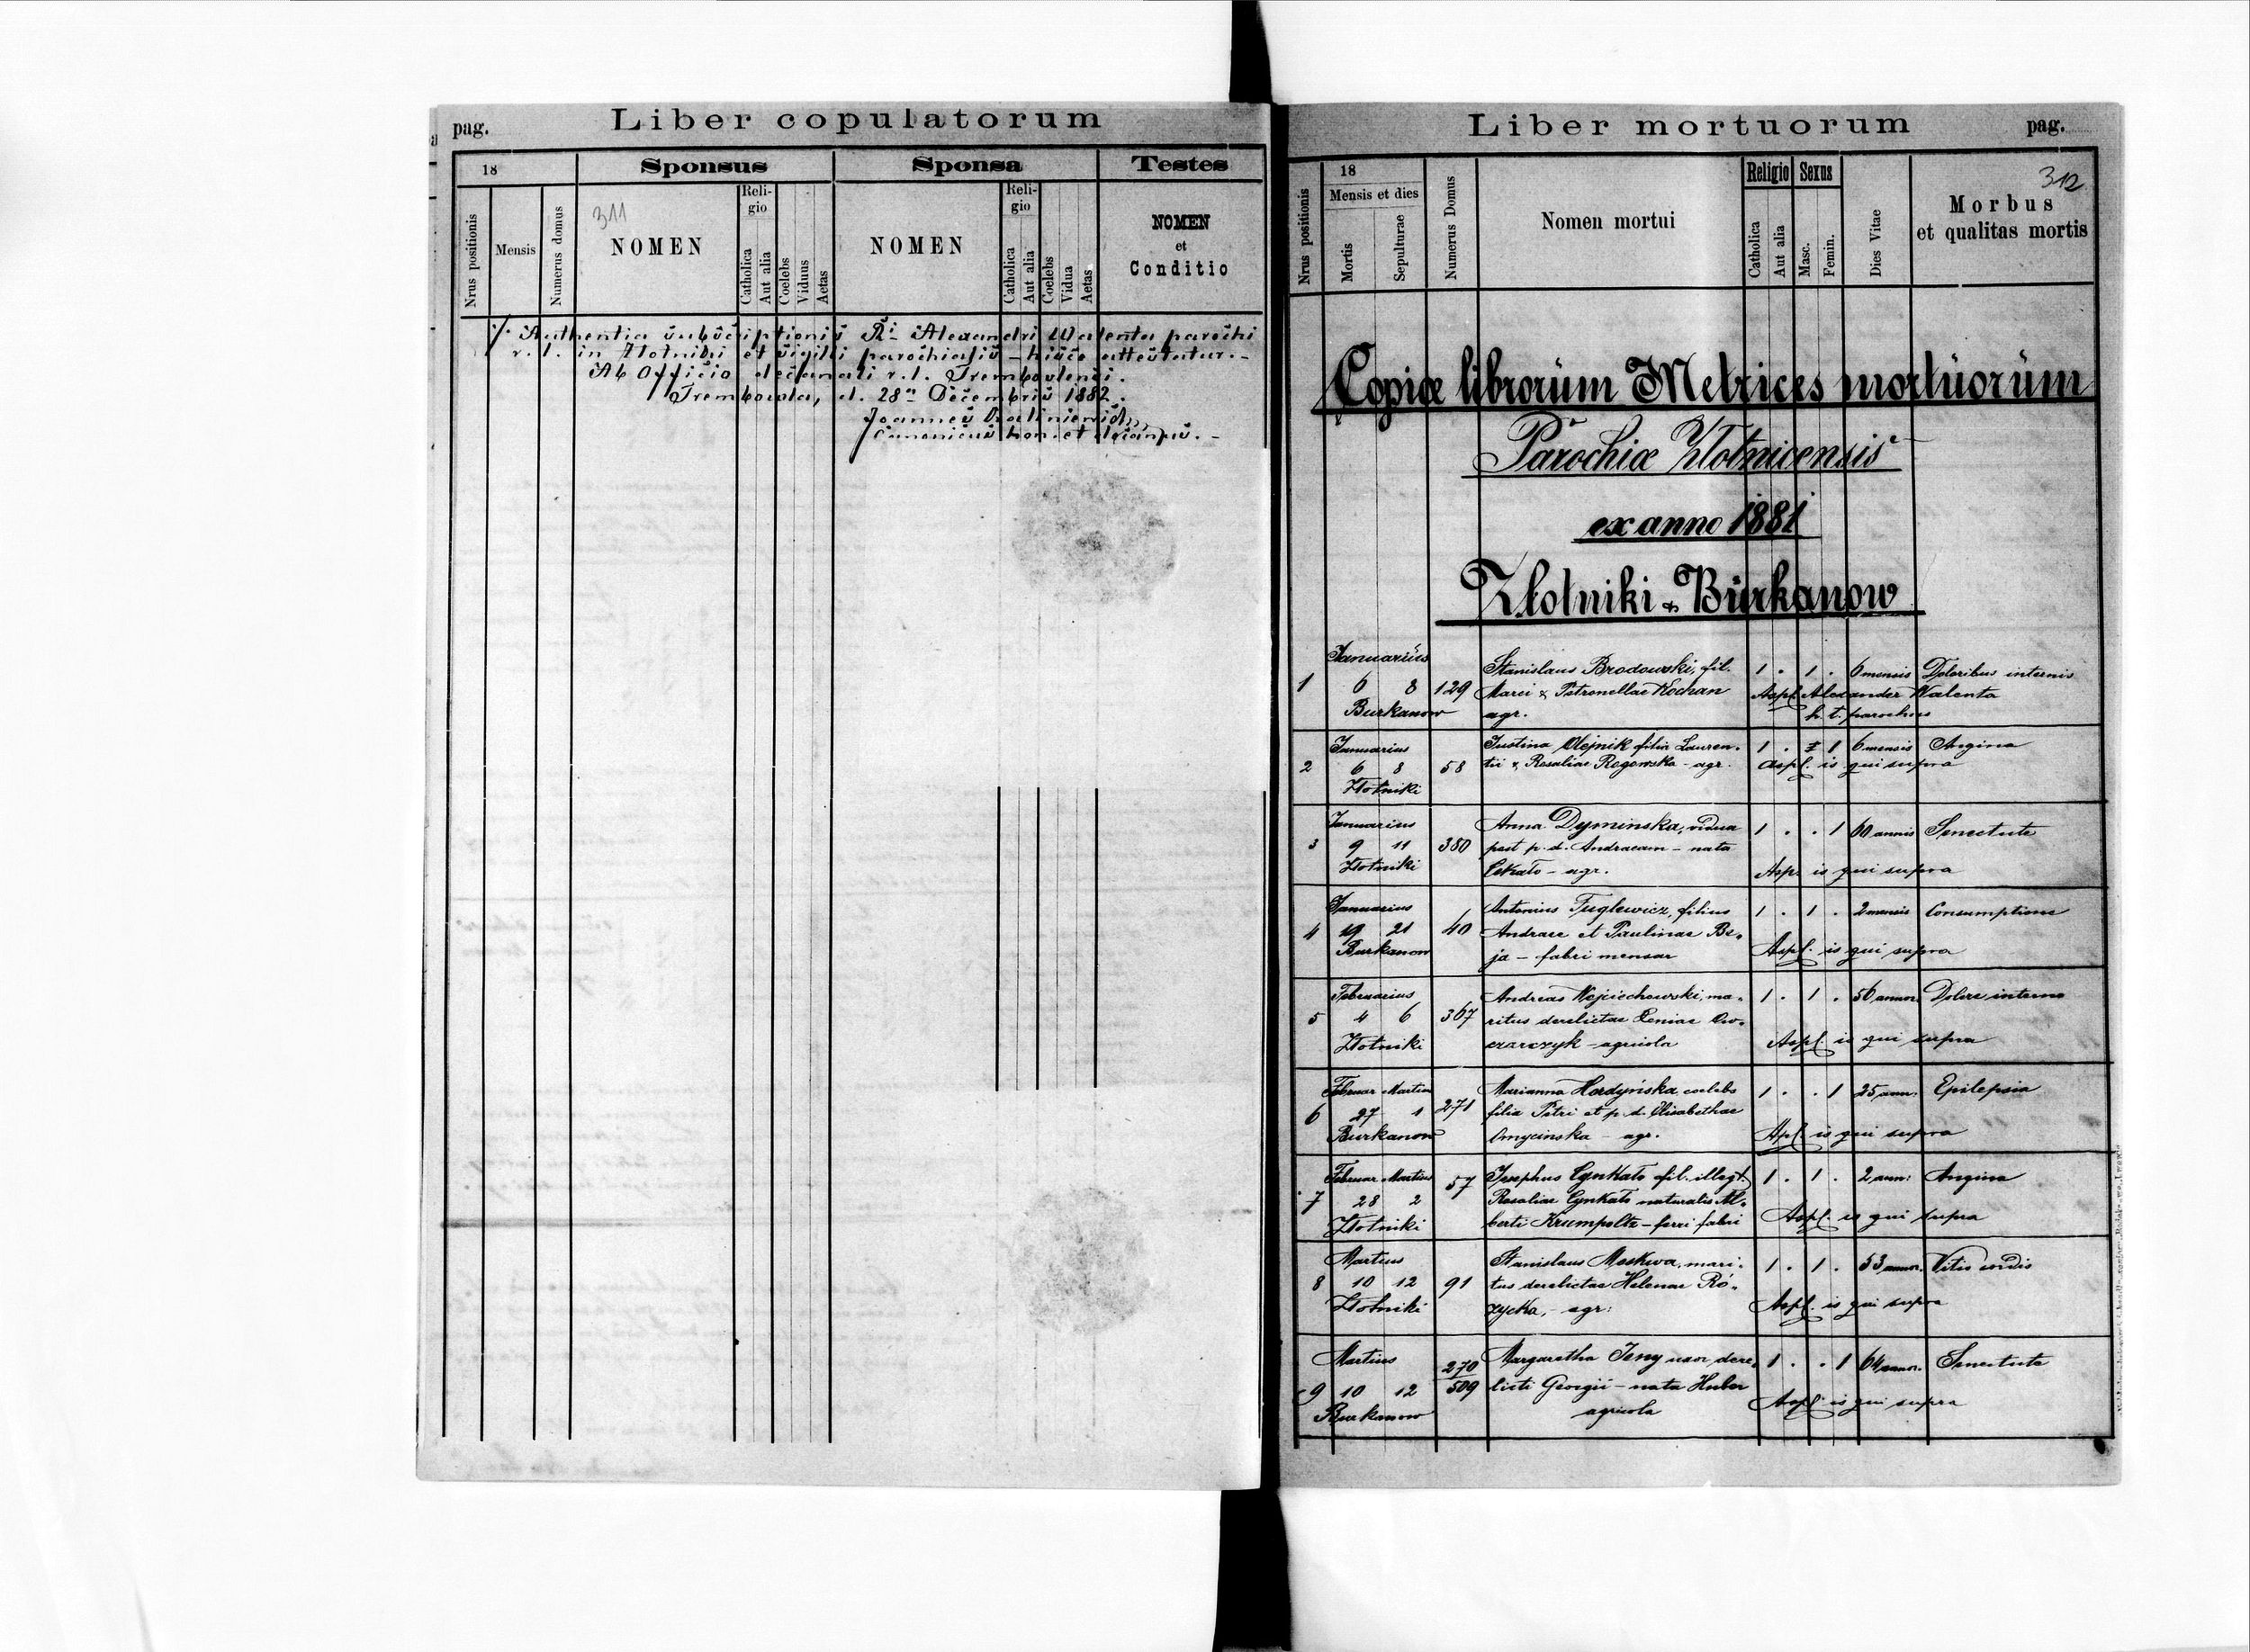 pag.
Liber copulatorum
18
Sponsus
Sponsa
Testes
Nrus positionis
Mensis
Numerus domus
311
NOMEN
Reli-
gio
Catholica
Aut alia
Coelebs
Viduus
Aetas
NOMEN
Reli-
gio
Catholica
Aut alia
Coelebs
Vidua
Aetas
NOMEN
et
Conditio
Authentia subscriptionis Alexandri Walenta parochi
r. l. in Złotniki et sigilli parochialis – hisce attestatur. –
Ab Officio decanali r. l. Trembovlensi.
Trembovla, d. 28 Decembris 1882.
Joannes
Canonicus hon. et decanus. –
Liber mortuorum
pag.
Nrus positionis
18
Mensis et dies
Mortis
Sepulturae
Numerus Domus
Nomen mortui
Religio
Catholica
Aut alia
Sexus
Masc.
Femin.
Dies Vitae
312
Morbus
et qualitas mortis
Copiæ librorum Metrices mortuorum
Parochiæ Złotnicensis
ex anno 1881
Złotniki & Burkanow
Januarius
1 6 8 129
Burkanow
Stanislaus Brodowski, fil.
Marci & Petronellae Kochan
agr.
1 . 1 . 6 mensis Doloribus internis
Aspl. Alexander Walenta
h. t. parochus
Januarius
2 6 8 58
Złotniki
Justina Olejnik filia Lauren-
tii & Rosaliae Rogowska – agr.
1 . 1 6 mensis Angina
Aspl. is qui supra
Januarius
3 9 11 380
Złotniki
Anna Dyminska, vidua
post p. d. Andraeam – nata
agr.
1 . . 1 60 annis Senectute
Asp. is qui supra
Januarius
4 19 21 40
Burkanow
Antonius Fuglewicz, filius
Andreae et Paulinae Be-
ja – fabri mensar
1 . 1 . 2 mensis Consumptione
Aspl. is qui supra
Februarius
5 4 6 367
Złotniki
Andreas Wojciechowski, ma-
ritus derelictae Xeniae Ow-
czarczyk – agricola
1 . 1 . 56 annor. Dolore interno
Aspl. is qui supra
Februar Martius
6 27 1 271
Burkanow
Marianna Hordyńska coelebs
filia Petri et p. d. Elisabethae
Omycinska – agr.
1 . . 1 25 ann. Epilepsia
Aspl. is qui supra
Februar Martius
7 28 2 57
Złotniki
Josephus Cynkało fil. illegt.
Rosaliae Cynkało naturalis Al-
berti Krumpoltz – ferri fabri
1 . 1 . 2 ann: Angina
Aspl. is qui supra
Martius
8 10 12 91
Złotniki
Stanislaus Moskwa, mari-
tus derelictae Helenae Ró-
zycka, – agr:
1 . 1 . 53 annor. Vitio cordis
Aspl. is qui supra
Martius
9 10 12 270/509
Burkanow
Margaretha Jeny uxor dere-
licti Georgii – nata Huber
agricola
1 . . 1 64 annor. Senectute
Aspl. is qui supra